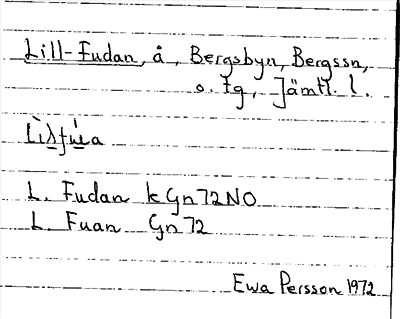 Lill-Fudan, å, Bergsbyn, Bergssn,
s. tg, Jämtl. l.
L. Fudan k Gn72NO
L. Fuan Gn72
Ewa Persson 1972